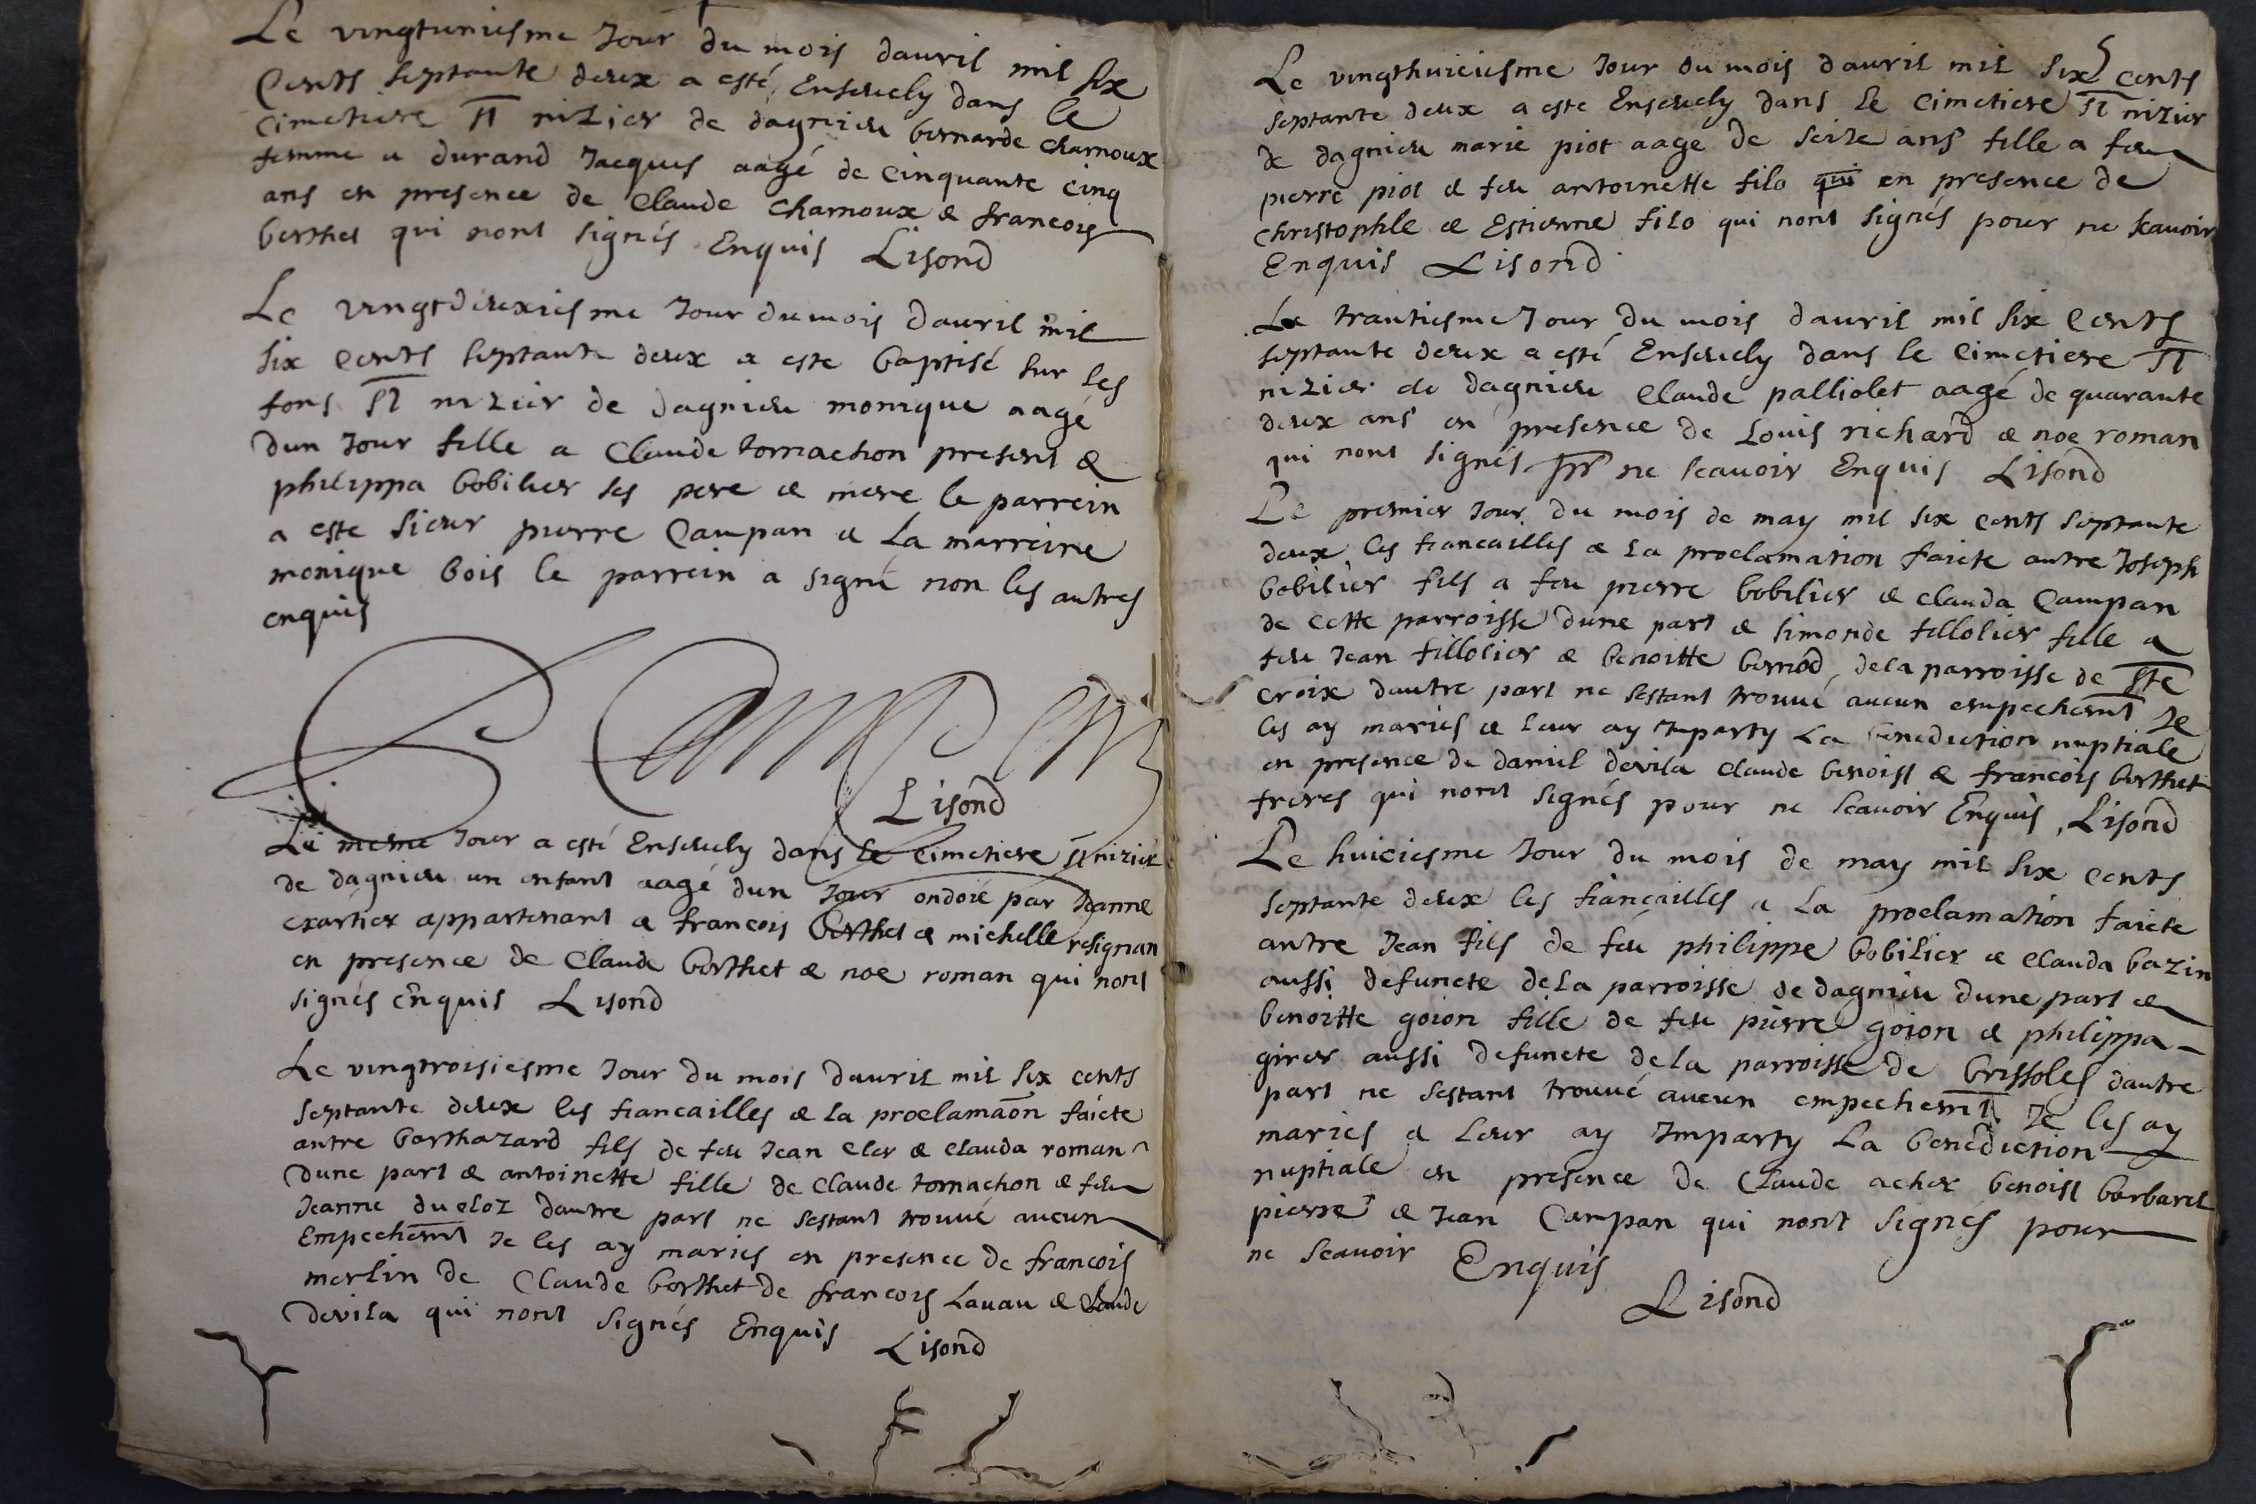 Le vingtuniesme Jour du mois dauril mil six
Cents septante deux a esté Enseuely dans le
cimetiere St nizier de dagnieu bernarde charnoux
femme a durand Jacques aagé de cinquante cinq
ans en presence de Claude charnoux & francois
berthet qui nont signés Enquis Lisond
Le vingtdeuxiesme Jour du mois dauril mil
six cents septante deux a este baptisé sur les
fons St nizier de dagnieu monique aagé
dun Jour fille a Claude tornachon present &
philippa bobilier ses pere & mere le parrein
a este sieur pierre Campan & La marreine
monique bois le parrein a signé non les autres
enquis
CAMPAN
Lisond
Le mesme Jour a esté Enseuely dans le cimetiere St nizier
de dagnieu un enfant aagé dun Jour ondoié par Jeanne
exartier appartenant a francois berthet & michelle resignan
en presence de Claude berthet & noe roman qui nont
signés Enquis Lisond
Le vingtroisiesme Jour du mois dauril mil six cents
septante deux les fiancailles & la proclamaon faicte
antre barthazard fils de feu Jean cler & clauda roman
dune part & antoinette fille de Claude tornachon & feu
Jeanne du cloz dautre part ne sestant trouué aucun
Empechemt Je les ay mariés en presence de francois
merlin de Claude berthet de francois Lauau & Claude
devila qui nont signés Enquis
Lisond
Le vingthuiciesme Jour du mois dauril mil six cents
septante deux a este Enseuely dans le cimetiere St nizier
de dagnieu marie piot aage de seize ans fille a feu
pierre piot & feu antoinette filo qui en presence de
christophle & Estienne filo qui nont signés pour ne scauoir
Enquis Lisond
Le trantiesme Jour du mois dauril mil six Cents
septante deux a esté Enseuely dans le cimetiere St
nizier de dagnieu Claude palliolet aagé de quarante
deux ans en presence de Louis richard & noe roman
qui nont signés pr ne scauoir Enquis Lisond
Le premier Jour du mois de may mil six cents septante
deux les fiancailles & La proclamation faicte autre Joseph
bobilier fils a feu pierre bobilier & clauda Campan
de cette parroisse dune part & simonde fillolier fille a
feu Jean fillolier & benoitte bernod dela parroisse de Ste
croix dautre part ne sestant trouué aucun empechemt Je
les ay mariés & leur ay Imparty La benediction nuptiale
en presence de daniel devila claude benoist & francois berthet
freres qui nont signés pour ne scauoir Enquis, Lisond
Le huiciesme Jour du mois de may mil six cents
septante deux les fiancailles & La proclamation faicte
antre Jean fils de feu philippe bobilier & clauda bazin
aussi defuncte dela parroisse de dagnieu dune part &
benoitte goion fille de feu pierre goion & philippa
girer aussi defuncte dela parroisse de brissoles dautre
part ne sestant trouué aucun empechemt Je les ay
mariés & Leur ay Imparty La benediction
nuptiale en presence de Claude acher benoist barbaret
pierre & Jean Campan qui nont signes pour
ne scauoir Enquis
Lisond